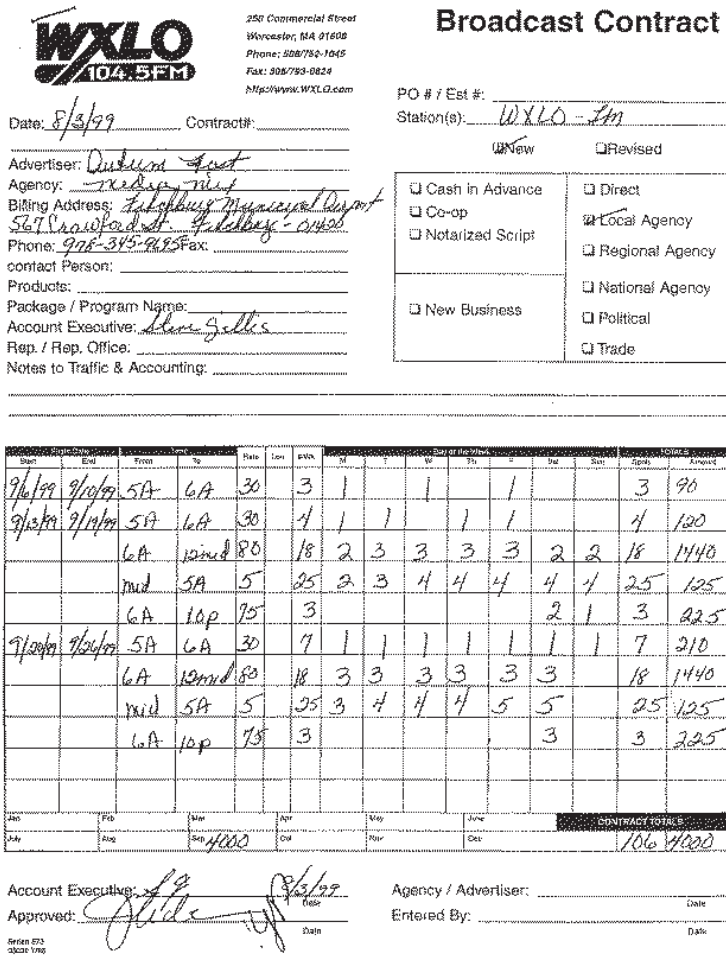 WXLO
104.5FM
250 Commercial Street
Worcester, MA 01608
Phone: 508/752-1045
Fax: 508/793-0824
http://www.WXLO.com
Broadcast Contract
PO # / Est #:
Station(s): WXLO - FM
New Revised
Date: 8/3/99 Contract#:
Advertiser:
Agency: media mix
Billing Address: Fitchburg Municipal Airport
567 Crawford St. Fitchburg - 01420
Phone: 978-345-9695 Fax:
contact Person:
Products:
Package / Program Name:
Account Executive: Steve Gillis
Rep. / Rep. Office:
Notes to Traffic & Accounting:
Cash in Advance
Co-op
Notarized Script
New Business
Direct
Local Agency
Regional Agency
National Agency
Political
Trade
Time Day of the Week TOTALS
Start End From To Rate Len M T W Th F Sat Sun Spots Amount
9/6/99 9/10/99 5A 6A 30 3 1 1 1 3 90
9/13/99 9/19/99 5A 6A 30 4 1 1 1 1 4 120
6A 12mid 80 18 2 3 3 3 3 2 2 18 1440
mid 5A 5 25 2 3 4 4 4 4 4 25 125
6A 10p 75 3 2 1 3 225
9/20/99 9/26/99 5A 6A 30 7 1 1 1 1 1 1 1 7 210
6A 12mid 80 18 3 3 3 3 3 3 18 1440
mid 5A 5 25 3 4 4 4 5 5 25 125
6A 10p 75 3 3 3 225
Jan Feb Mar Apr May June CONTRACT TOTALS
July Aug Sep 4000 Oct Nov Dec 106 4000
Account Executive: SG 8/3/99
Date
Approved:
Date
Agency / Advertiser:
Date
Entered By:
Date